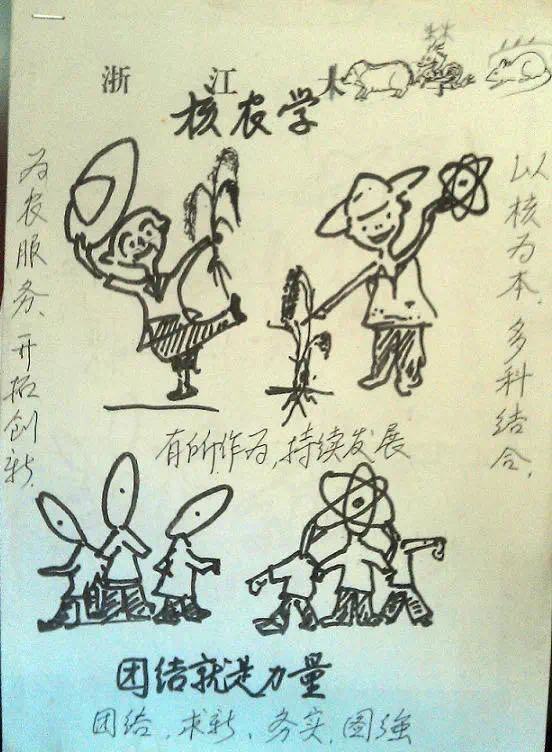 浙江大学
核农学
以核为本、多科结合、
为农服务、开拓创新、
有所作为,持续发展
团结就是力量
团结、求新、务实、图強